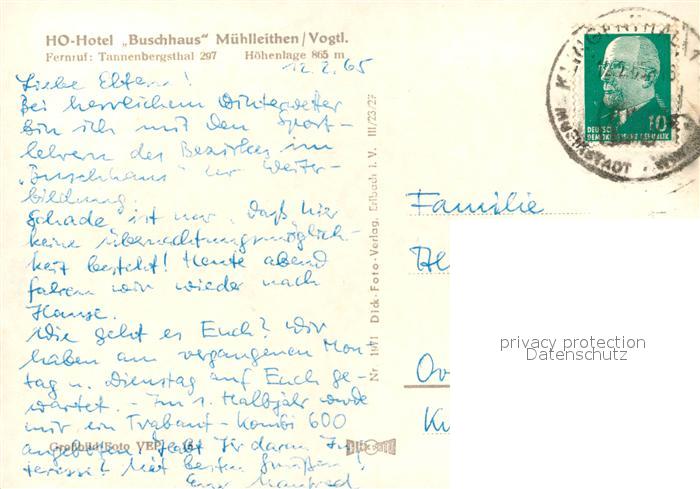 HO-Hotel „Buschhaus" Mühlleithen/Vogtl.
Fernruf: Tannenbergsthal 297 Höhenlage 865 m
12.2.65
Liebe Eltern!
Bei herrlichem Winterwetter
bin ich mit den Sport-
lehrern des Bezirkes im
„Buschhaus" zur Weiter-
bildung.
Schade ist nur, daß hier
keine Übernachtungsmöglich-
keit besteht! Heute abend
fahren wir wieder nach
Hause.
Wie geht es Euch? Wir
haben am vergangenen Mon-
tag u. Dienstag auf Euch ge-
wartet. - Im 1. Halbjahr wurde
mir ein Trabant-Kombi 600
angeboten. Habt Ihr daran In-
teresse? Mit besten Grüßen!
Euer Manfred
Großbild-Foto VEB
Nr. 1971 Dick-Foto-Verlag, Erlbach i. V. III/23/27
KLINGENTHAL 1
12.2.65
MUSIKSTADT
DEUTSCHE
DEMOKRATISCHE REPUBLIK
10
Familie
privacy protection
Datenschutz